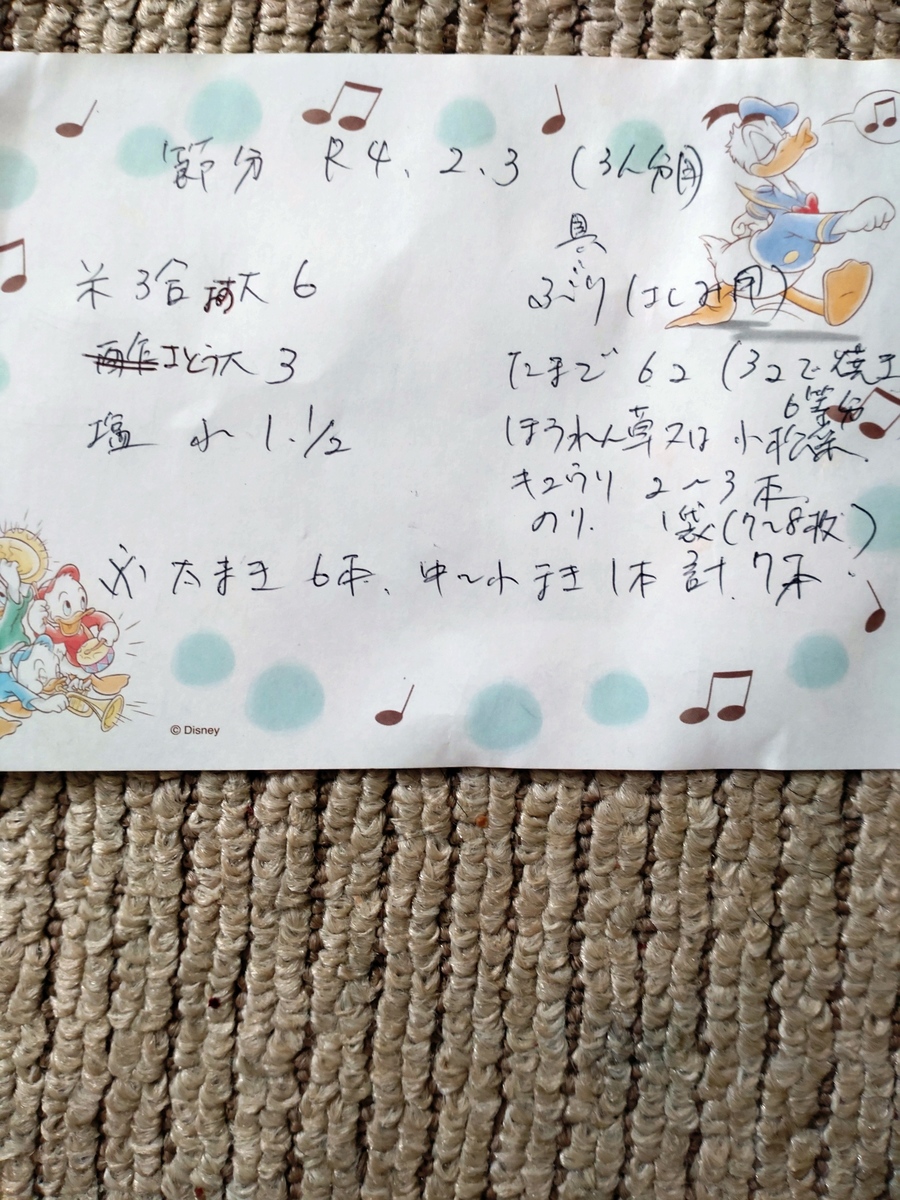 節分 R4、2、3 (3人分用)
米 3合 酢大 6
さとう大 3
塩 小 1.1/2
具
ぶり(さしみ用)
たまご 6コ (3コで焼き
6等分
ほうれん草又は 小松菜
キュウリ 2〜3本
のり. 1袋(7〜8枚)
※ 太まき 6本、中〜小まき 1本 計 7本.
© Disney